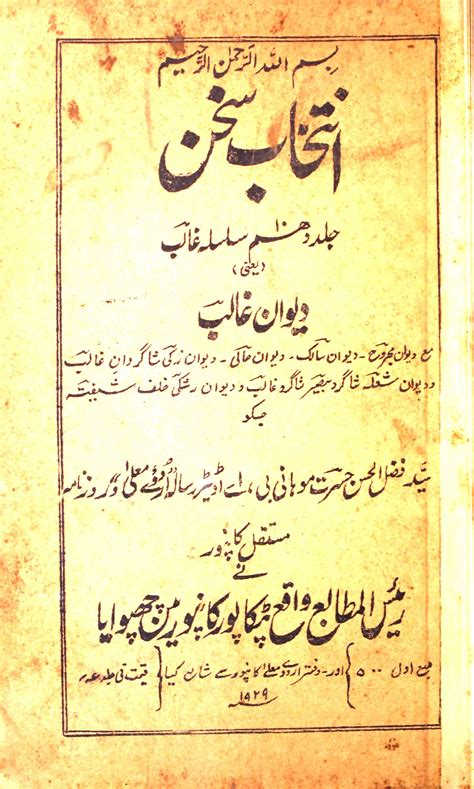 بسم اللہ الرحمٰن الرحیم
انتخاب سخن
جلد دہم سلسلہ غالب
(یعنی)
دیوان غالب
مع دیوان مجروح - دیوان سالک - دیوان حالی - دیوان زکی شاگردان غالب
و دیوان شعلہ شاگرد بیصبر شاگرد غالب و دیوان رشکی خلف شیفتہ
جسکو
سید فضل الحسن حسرت موہانی بی، اے اڈیٹر رسالہ اردوئے معلیٰ و روزنامہ
مستقل کانپور
نے
رئیس المطابع واقع ٹپکاپور کانپور مین چھپوایا
طبع اول ۵۰۰ اور دفتر اردوئے معلیٰ کانپور سے شایع کیا قیمت فی جلد
۱۹۲۹